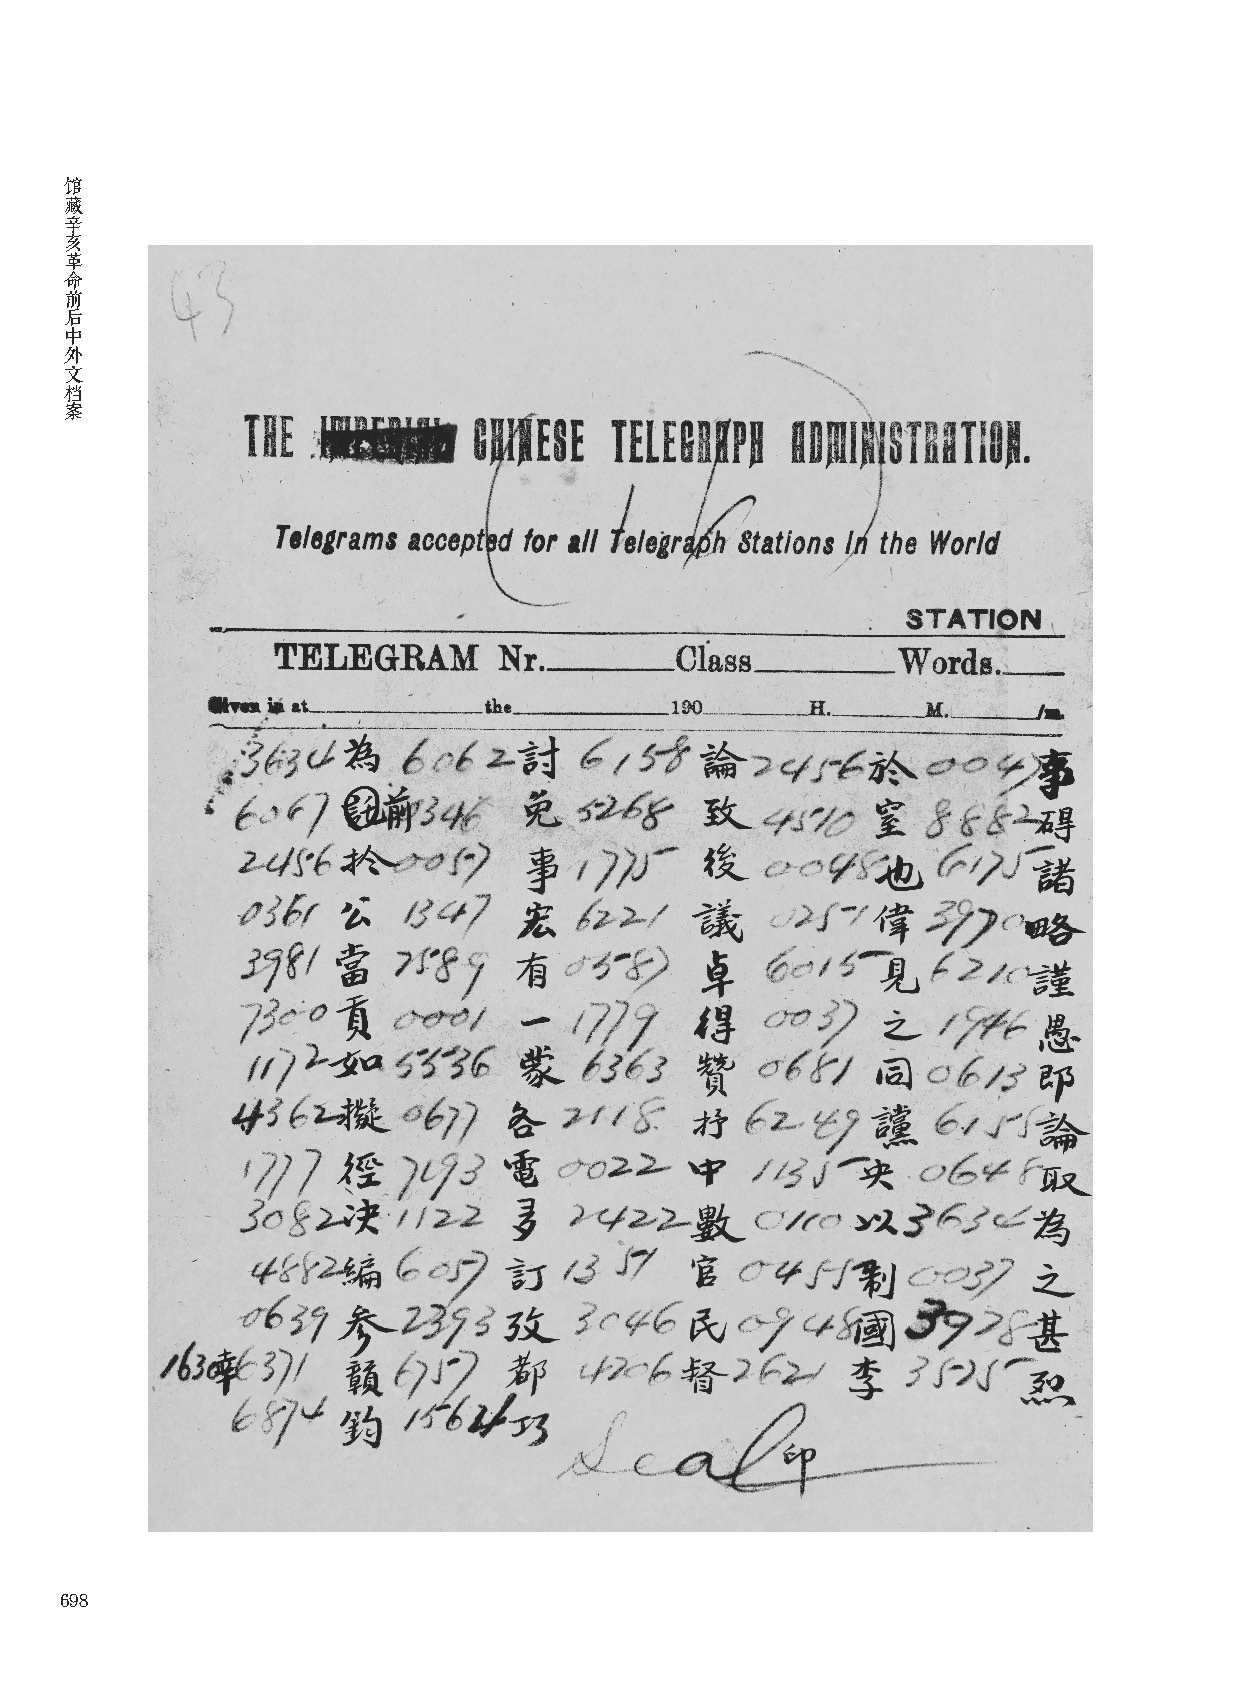 馆藏辛亥革命前后中外文档案
43
THE IMPERIAL CHINESE TELEGRAPH ADMINISTRATION.
Telegrams accepted for all Telegraph Stations in the World
(16)
STATION
TELEGRAM Nr. Class Words.
Given in at the 190 H. M. /m.
3634 為 6062 討 6158 論 2456 於 事
6067 前 0346 免 5268 致 4510 窒 8882 碍
2456 於 0057 事 1775 後 0048 也 6175 諸
0361 公 1347 宏 6221 議 0251 偉 3970 略
3981 當 2589 有 0587 卓 6015 見 6210 謹
7300 貢 0001 一 1779 得 0037 之 1946 愚
1172 如 5536 蒙 6363 贊 0681 同 0613 即
4362 擬 0677 各 2118 抒 6249 讜 6155 論
1777 徑 7193 電 0022 中 1135 央 0648 取
3082 決 1122 多 2422 數 0110 以 3634 為
4882 編 6057 訂 1351 官 0455 制 0037 之
0639 參 2393 攷 3046 民 0948 國 3928 甚
1630 幸 6371 贛 6757 都 4206 督 2621 李 3525 烈
6874 鈞 1564 巧
Seal 印
698